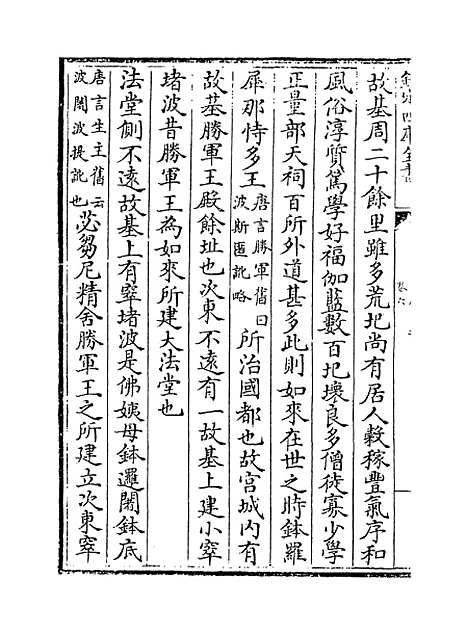 欽定四庫全書
卷六
故基周二十餘里雖多荒圮尚有居人穀稼豐氣序和
風俗淳質篤學好福伽藍數百圮壞良多僧徒寡少學
正量部天祠百所外道甚多此則如來在世之時鉢羅
犀那恃多王唐言勝軍舊曰波斯匿訛略所治國都也故宮城內有
故基勝軍王殿餘址也次東不遠有一故基上建小窣
堵波昔勝軍王為如來所建大法堂也
法堂側不遠故基上有窣堵波是佛姨母鉢邏闍鉢底
唐言生主舊云波闍波提訛也苾芻尼精舍勝軍王之所建立次東窣